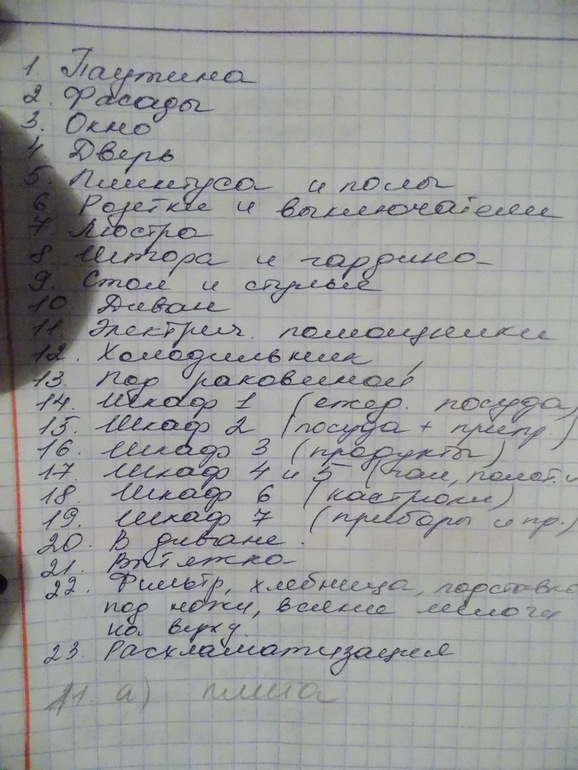 1 Паутина
2. Фасады
3. Окно
4 Дверь
5. Плинтуса и полы
6 Розетки и выключатели
7 Люстра
8 Штора и гардина
9. Стол и стулья
10 Диван
11. Электрич. помощники
12. Холодильник
13. Под раковиной
14. Шкаф 1 (ежед. посуда)
15. Шкаф 2 (посуда + припр.)
16. Шкаф 3 (продукты)
17. Шкаф 4 и 5
18. Шкаф 6 (кастрюли)
19. Шкаф 7 (приборы и пр.)
20. В диване.
21. Вытяжка
22. Фильтр, хлебница, подставка
под ножи, всякие мелочи
на верху.
23. Расхламатизация
11. а) плита